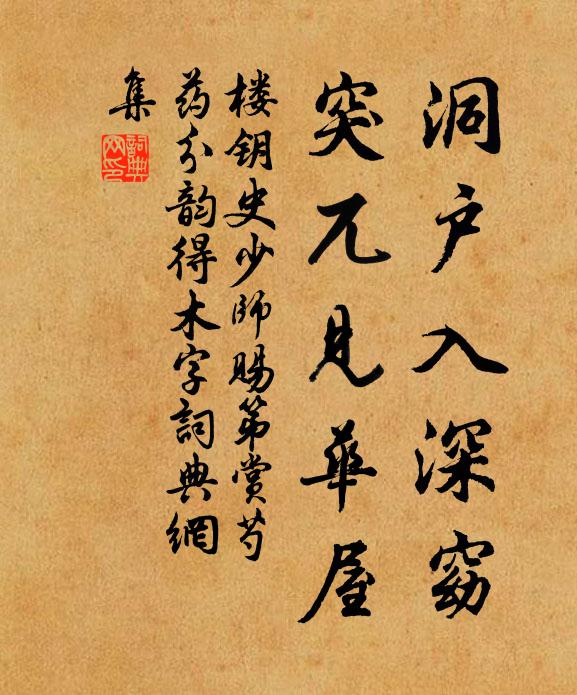 洞户入深窈
突兀见华屋
楼钥史少师赐第赏芍
药分韵得木字詞典網
集
詞典